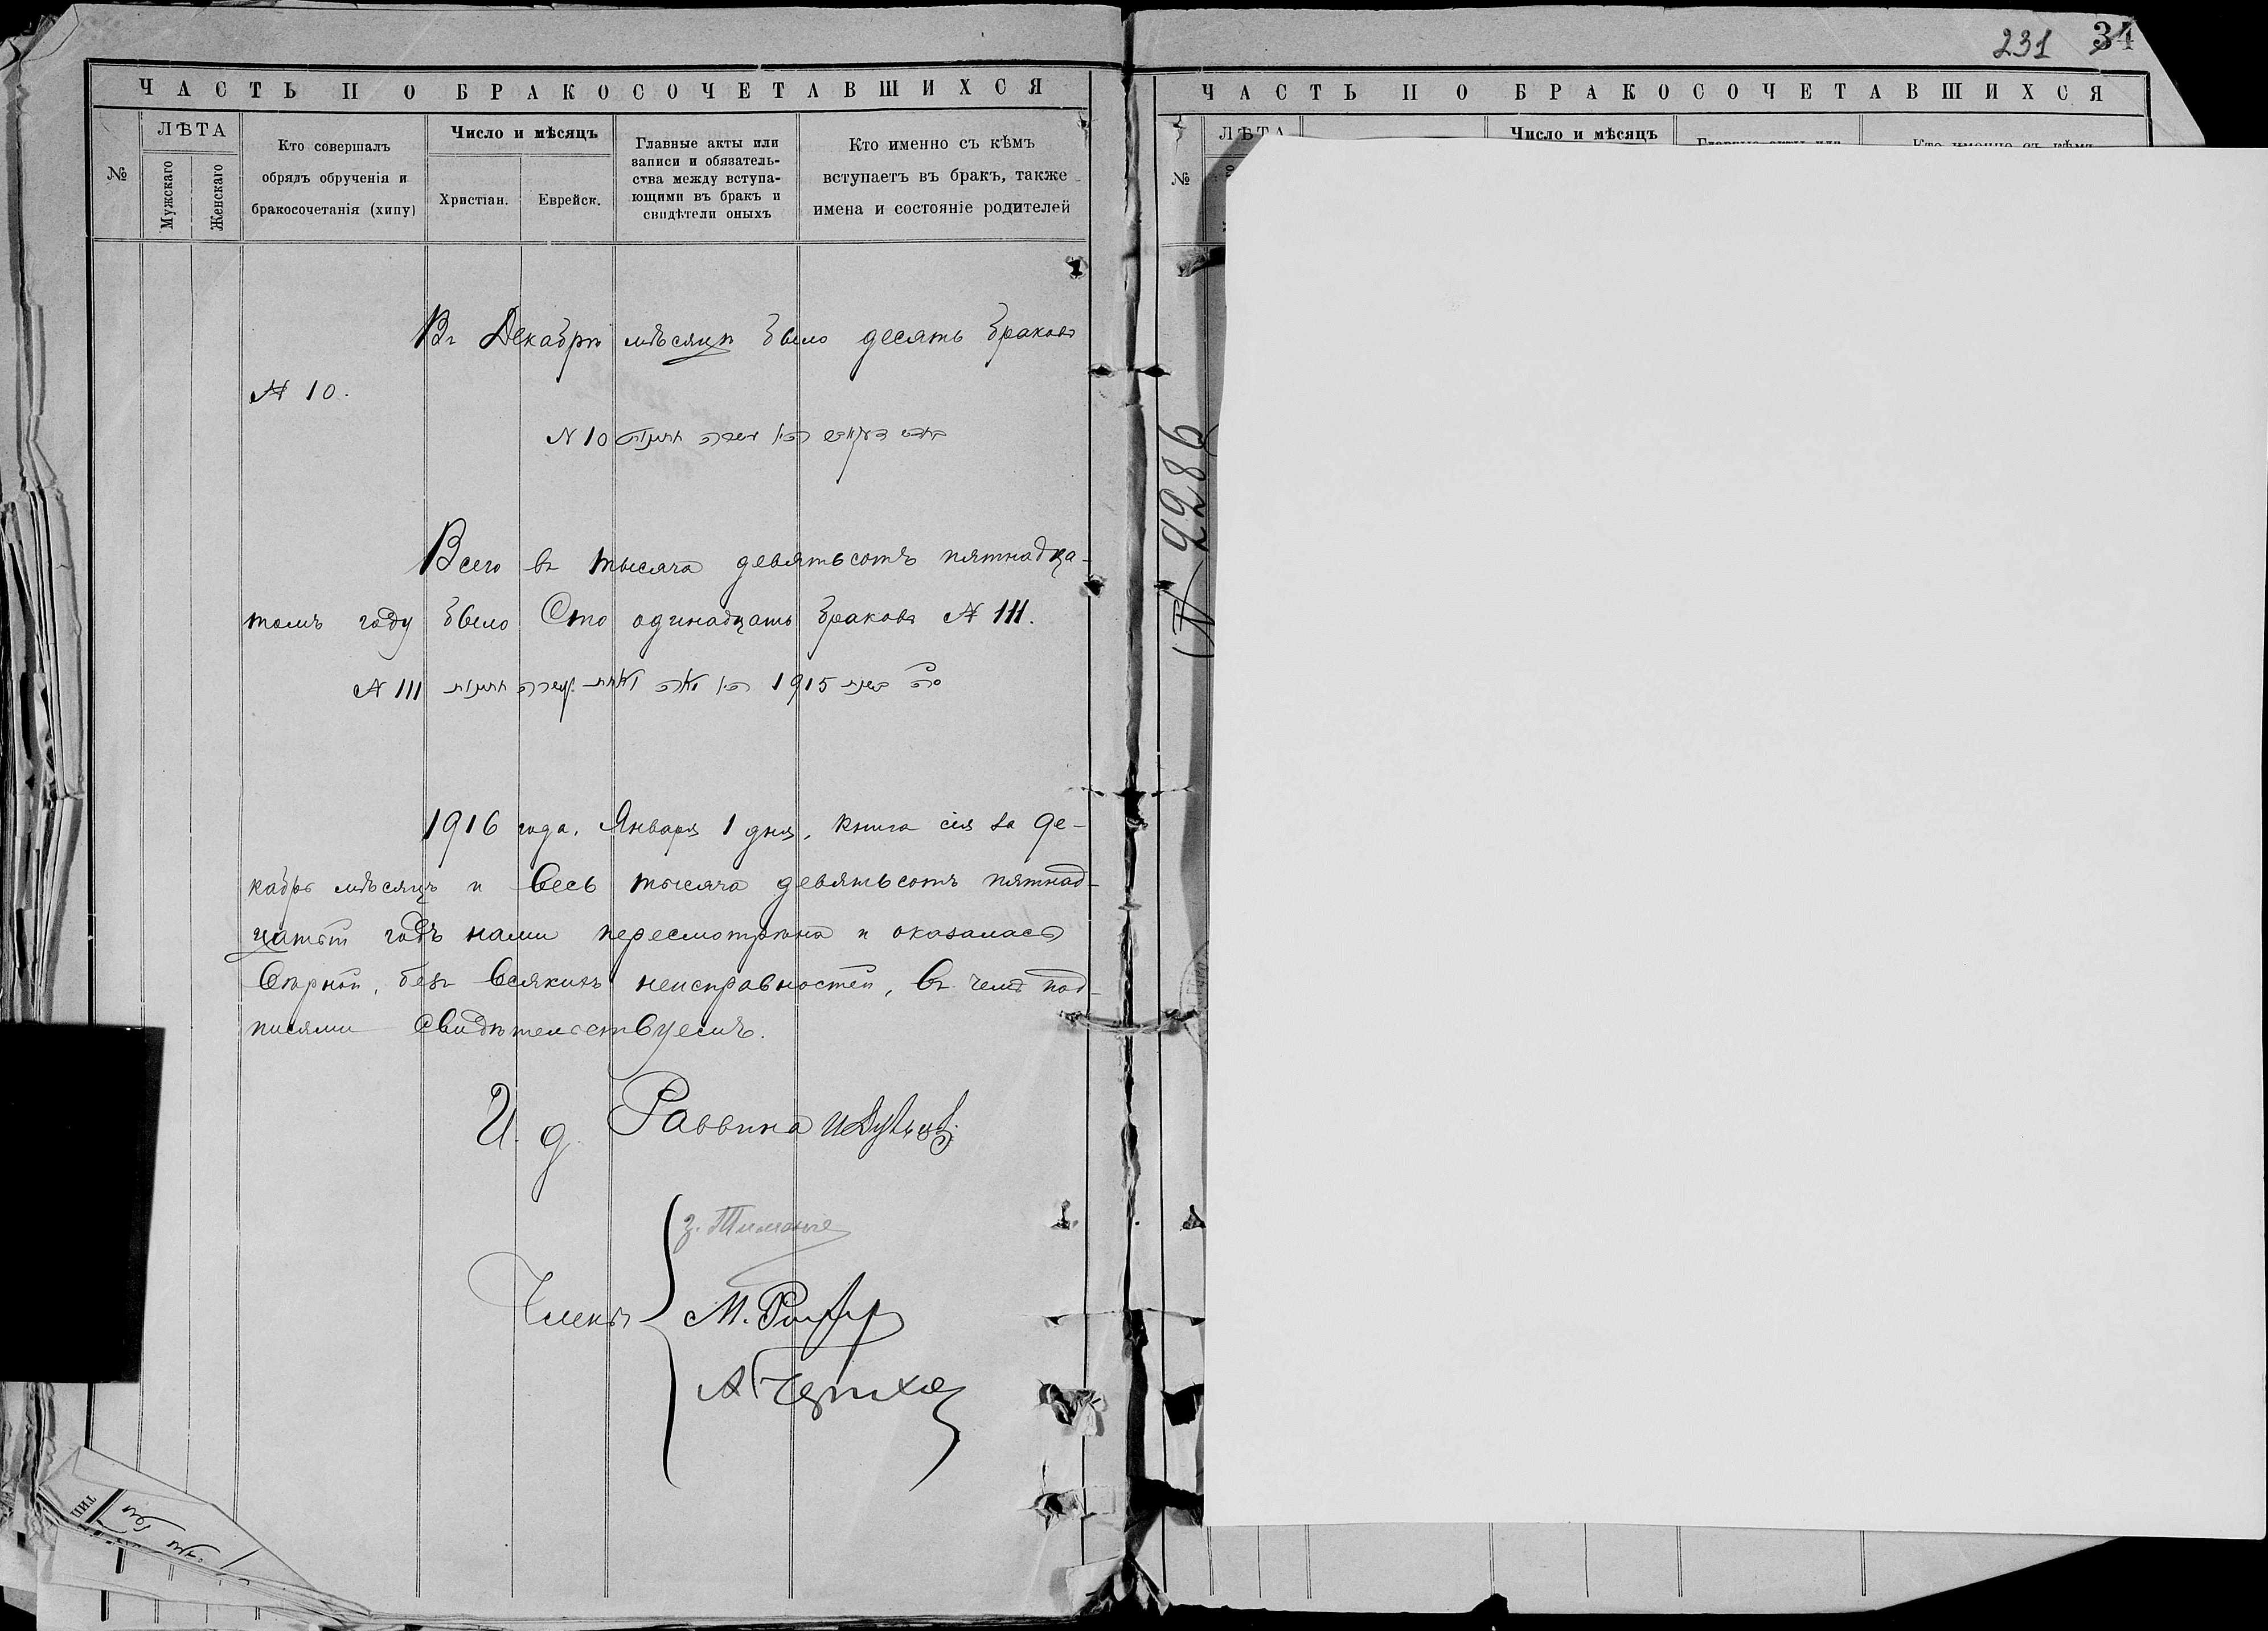 ЧАСТЬ II О БРАКОСОЧЕТАВШИХСЯ
№
ЛѢТА
Мужскаго
Женскаго
Кто совершалъ
обрядъ обрученія и
бракосочетанія (хипу)
Число и мѣсяцъ
Христіан.
Еврейск.
Главные акты или
записи и обязатель-
ства между вступа-
ющими въ бракъ и
свидѣтели оныхъ
Кто именно съ кѣмъ
вступаетъ въ бракъ, также
имена и состояніе родителей
Въ Декабрѣ мѣсяцѣ было десять браковъ
№ 10.
חדש דעצמבר היו עשרה חתונות N 10
Всего въ тысяча девятьсотъ пятнадца-
томъ году было Сто одинадцать браковъ № 111.
1915 היו מאה חתונות № 111
1916 года, Января 1 дня, книга сія за де-
кабрь мѣсяцъ и весь тысяча девятьсотъ пятнад-
цатый годъ нами пересмотрѣна и оказалась
вѣрной, безъ всякихъ неисправностей, въ чемъ под-
писями свидѣтельствуемъ.
И. д. Раввина
Члены
М.
А.
231 34
ЧАСТЬ II О БРАКОСОЧЕТАВШИХСЯ
№
ЛѢТА
Число и мѣсяцъ
Главные акты или
Кто именно съ кѣмъ